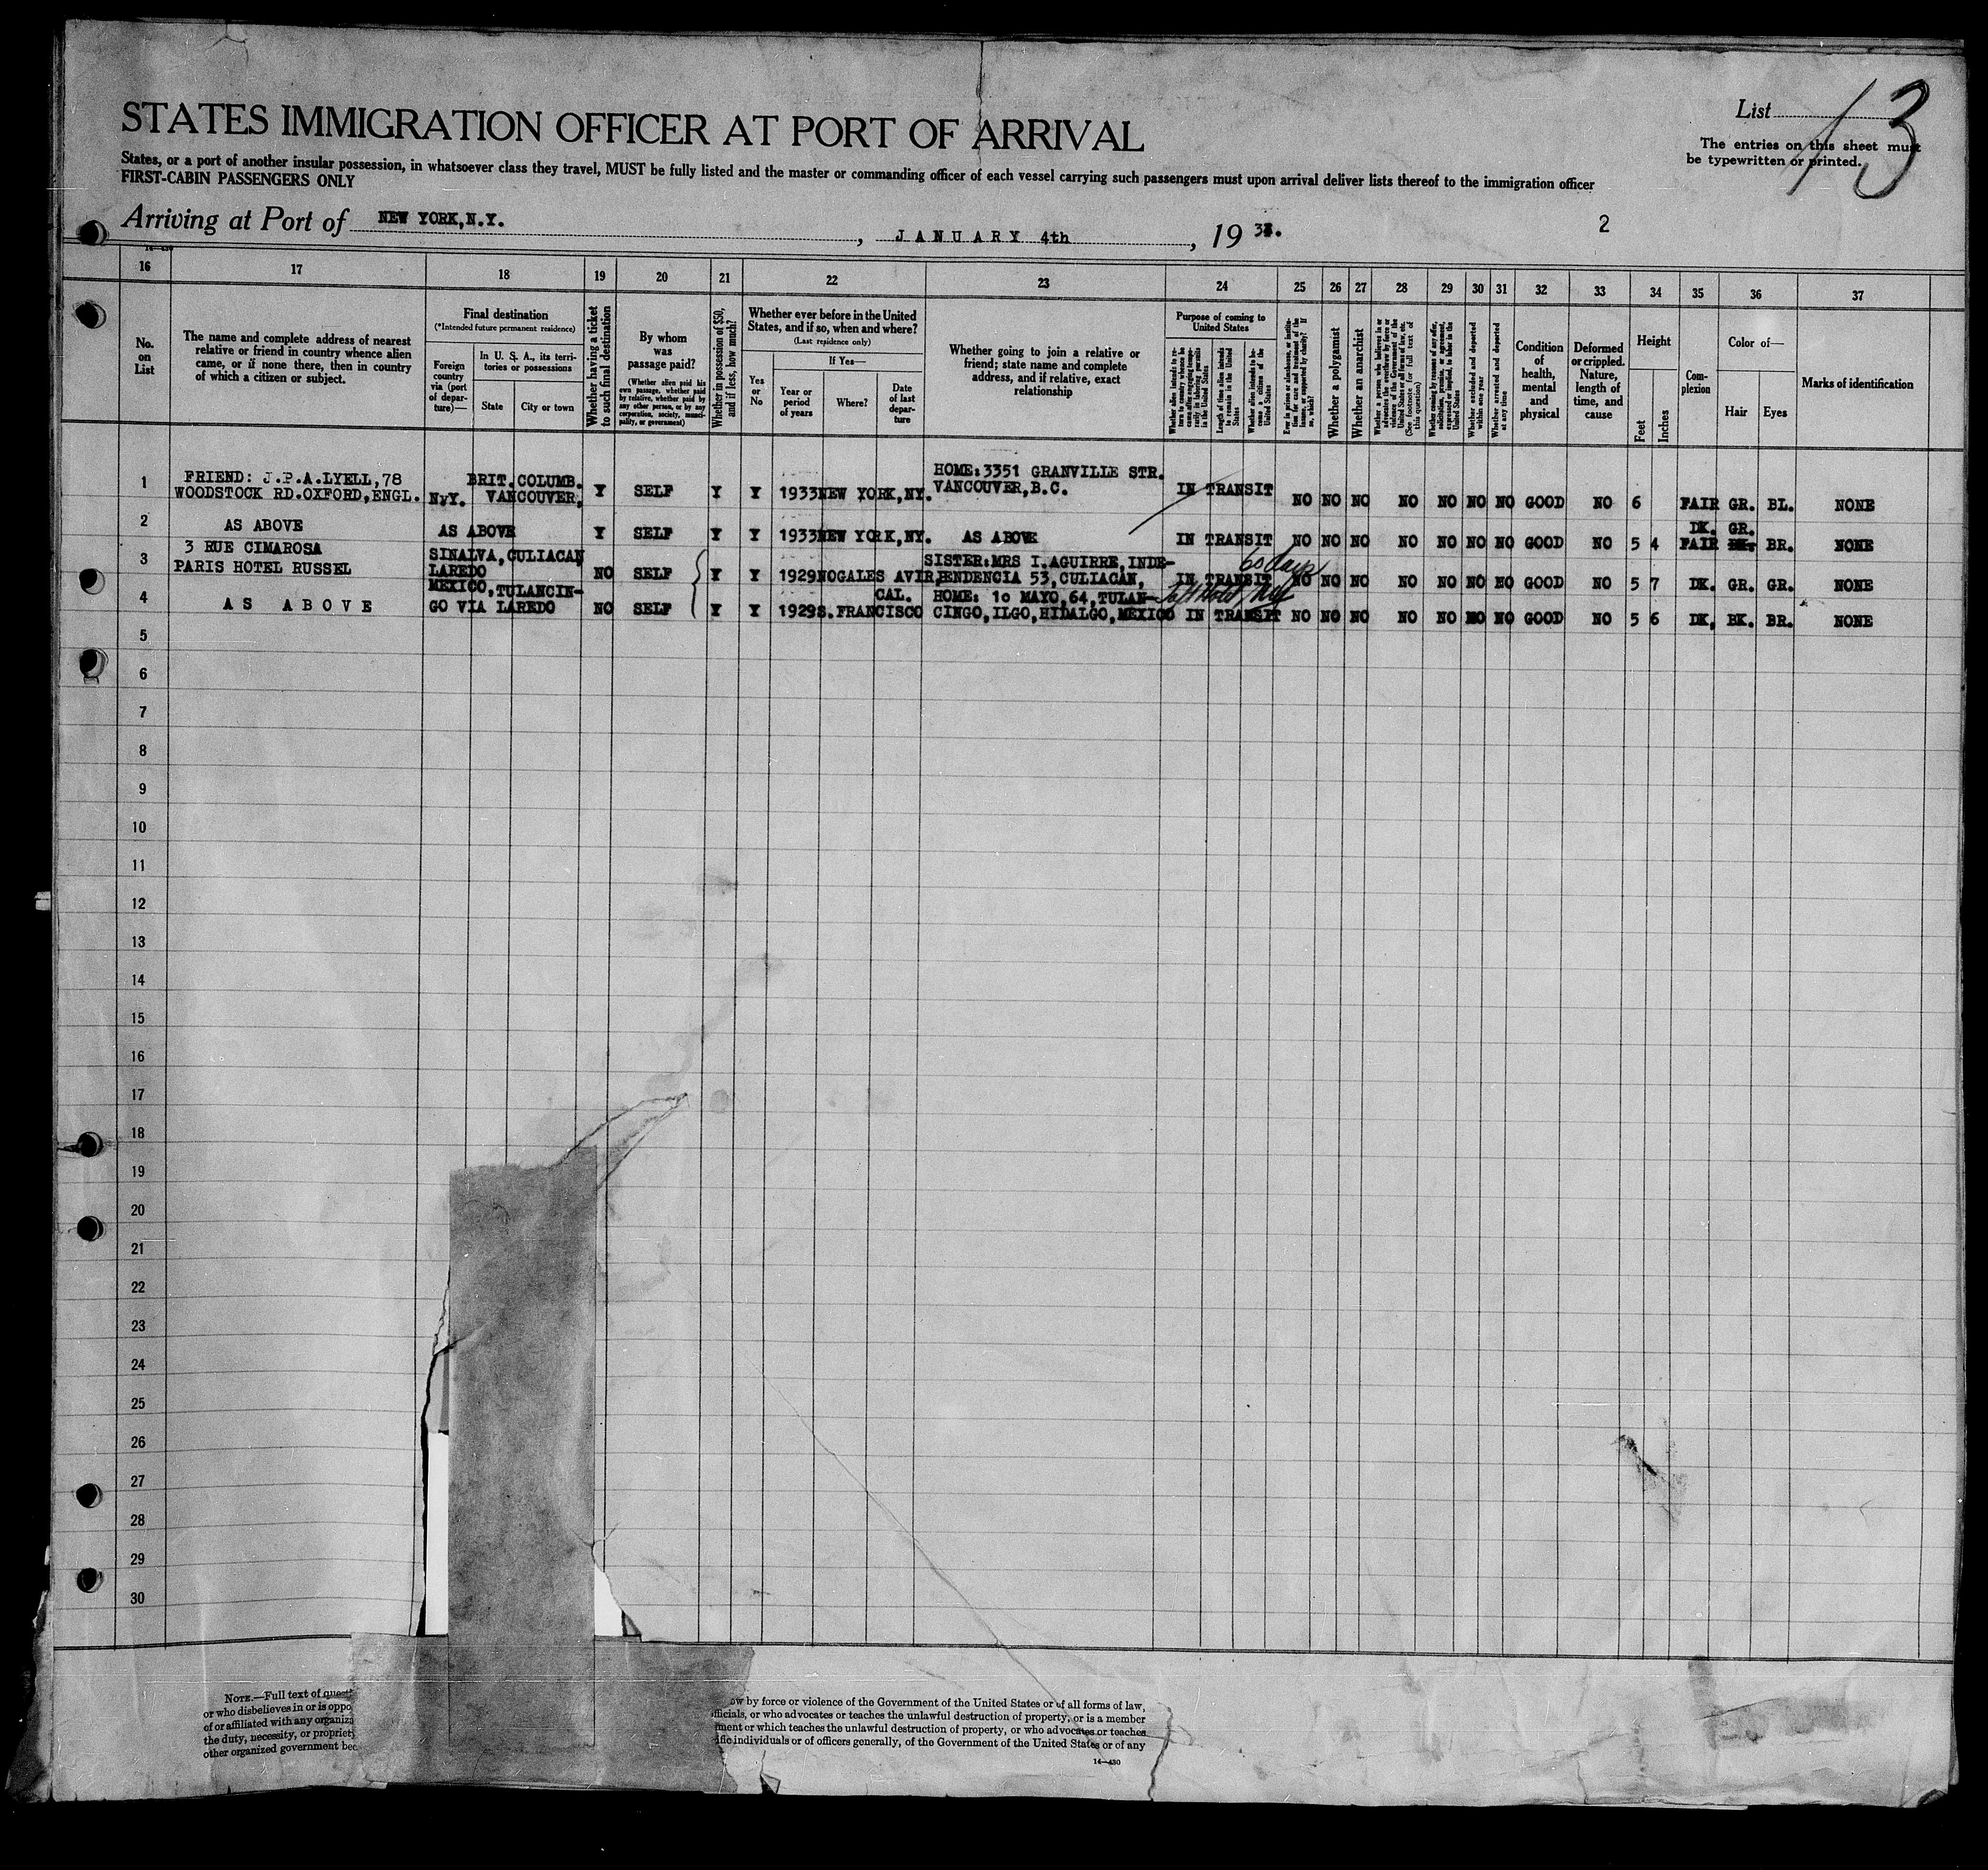 List 13
STATES IMMIGRATION OFFICER AT PORT OF ARRIVAL
The entries on this sheet must
be typewritten or printed.
States, or a port of another insular possession, in whatsoever class they travel, MUST be fully listed and the master or commanding officer of each vessel carrying such passengers must upon arrival deliver lists thereof to the immigration officer
FIRST-CABIN PASSENGERS ONLY
Arriving at Port of NEW YORK,N.Y. , JANUARY 4th , 19
2
16 17 18 19 20 21 22 23 24 25 26 27 28 29 30 31 32 33 34 35 36 37
No. on List
The name and complete address of nearest relative or friend in country whence alien came, or if none there, then in country of which a citizen or subject.
Final destination
(*Intended future permanent residence)
Foreign country via (port of departure)—
In U. S. A., its territories or possessions
State
City or town
Whether having a ticket to such final destination
By whom was passage paid?
(Whether alien paid his own passage, whether paid by relative, whether paid by any other person, or by any corporation, society, municipality, or government)
Whether in possession of $50, and if less, how much?
Whether ever before in the United States, and if so, when and where?
(Last residence only)
Yes or No
If Yes—
Year or period of years
Where?
Date of last departure
Whether going to join a relative or friend; state name and complete address, and if relative, exact relationship
Purpose of coming to United States
Whether alien intends to return to country whence he came after engaging temporarily in laboring pursuits in the United States
Length of time alien intends to remain in the United States
Whether alien intends to become a citizen of the United States
Ever in prison or almshouse, or institution for care and treatment of the insane, or supported by charity? If so, which?
Whether a polygamist
Whether an anarchist
Whether a person who believes in or advocates the overthrow by force or violence of the Government of the United States or all forms of law, etc. (See footnote for full text of this question)
Whether coming by reason of any offer, solicitation, promise, or agreement, expressed or implied, to labor in the United States
Whether excluded and deported within one year
Whether arrested and deported at any time
Condition of health, mental and physical
Deformed or crippled. Nature, length of time, and cause
Height
Feet
Inches
Complexion
Color of—
Hair
Eyes
Marks of identification
1 FRIEND: J.P.A.LYELL,78 BRIT.COLUMB. HOME:3351 GRANVILLE STR.
WOODSTOCK RD.OXFORD,ENGL. NYY. VANCOUVER, Y SELF Y Y 1933 NEW YORK,NY. VANCOUVER,B.C. IN TRANSIT NO NO NO NO NO NO NO GOOD NO 6 FAIR GR. BL. NONE
2 AS ABOVE AS ABOVE Y SELF Y Y 1933 NEW YORK,NY. AS ABOVE IN TRANSIT NO NO NO NO NO NO NO GOOD NO 5 4 DK. FAIR GR. BR. NONE
3 3 RUE CIMAROSA SINALVA,CULIACAN SISTER:MRS I.AGUIRRE,INDE- 60 days
PARIS HOTEL RUSSEL LAREDO NO SELF Y Y 1929 NOGALES AVIR, PENDENCIA 53,CULIACAN, IN TRANSIT NO NO NO NO NO NO NO GOOD NO 5 7 DK. GR. GR. NONE
4 MEXICO,TULANCIN- CAL. HOME: 10 MAYO,64,TULAN- Taft Hotel, NY
AS ABOVE GO VIA LAREDO NO SELF Y Y 1929 S.FRANCISCO CINGO,ILGO,HIDALGO,MEXICO IN TRANSIT NO NO NO NO NO NO NO GOOD NO 5 6 DK, BK. BR. NONE
5
6
7
8
9
10
11
12
13
14
15
16
17
18
19
20
21
22
23
24
25
26
27
28
29
30
NOTE.—Full text of quest
or who disbelieves in or is oppo
of or affiliated with any organiza
the duty, necessity, or propriety
other organized government bec
ow by force or violence of the Government of the United States or of all forms of law,
fficials, or who advocates or teaches the unlawful destruction of property, or is a member
ment or which teaches the unlawful destruction of property, or who advocates or teaches
ific individuals or of officers generally, of the Government of the United States or of any
14—430